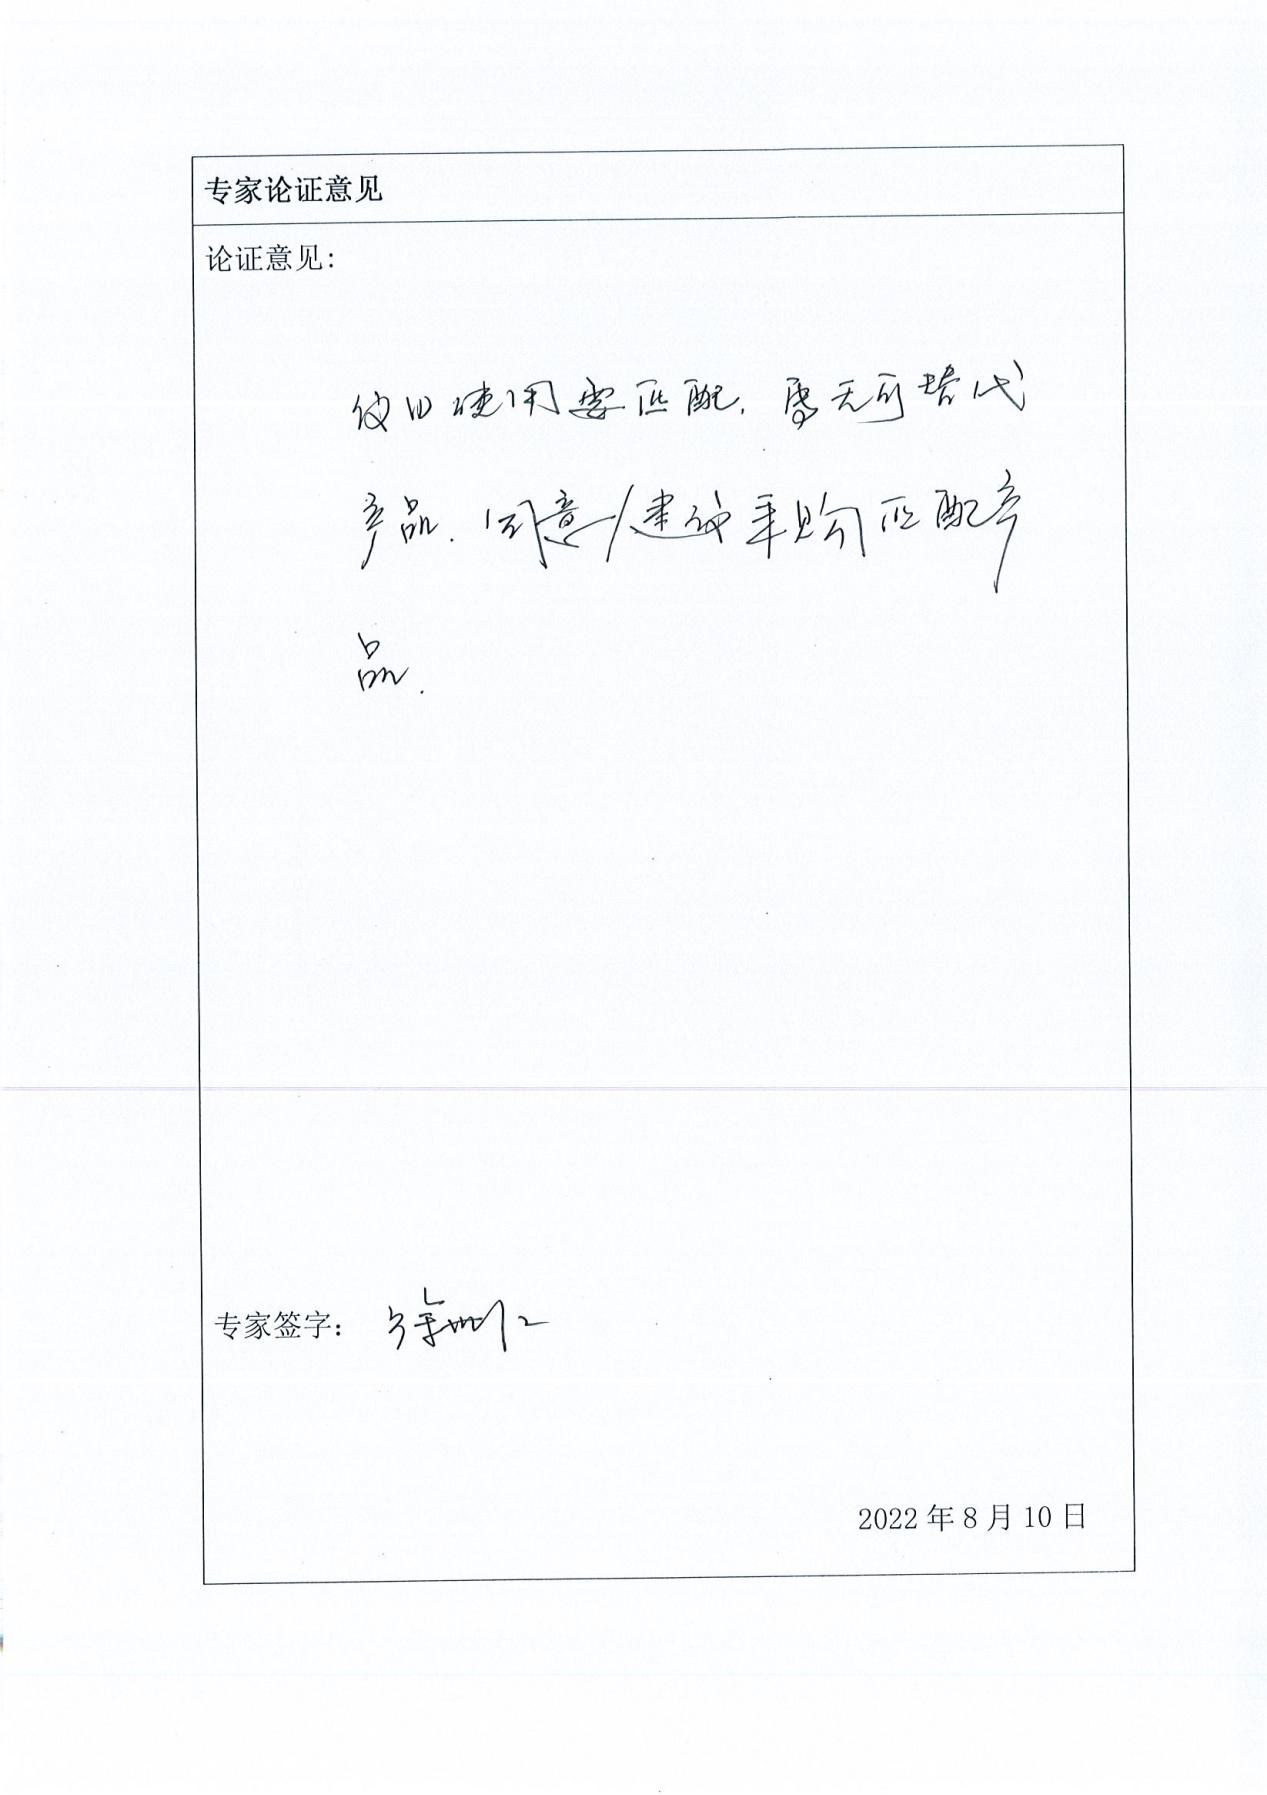 专家论证意见
论证意见:
使用要匹配, 无可替代
产品. 同意/建议采购匹配产
品.
专家签字:
2022年8月10日